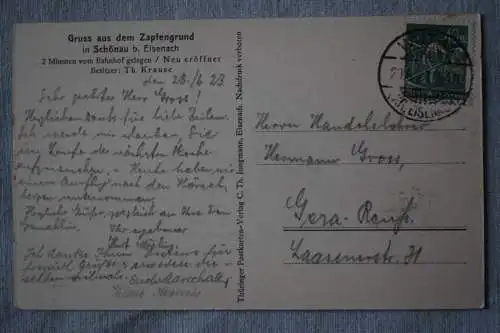 Gruss aus dem Zapfengrund
in Schönau b. Eisenach
2 Minuten vom Bahnhof gelegen / Neu eröffnet
Besitzer: Th. Krause
den 28./6. 23.
Sehr geehrter Herr Gross!
Herzlichen Dank für Ihre Zeilen.
Ich werde mir erlauben, Sie
im Laufe der nächsten Woche
aufzusuchen. – Heute haben wir
einen Ausflug nach den Hörsel-
bergen unternommen
Herzliche Grüße, zugleich an Ihre Frau
Gemahlin
Ihr ergebener
Kurt
Ich danke Ihnen bestens für
Grüße &
selben
Thüringer Postkarten-Verlag C. Th. Jungmann, Eisenach. Nachdruck verboten
Herrn Handelslehrer
Hermann Gross,
Gera-Reuß.
Laasenerstr. 31